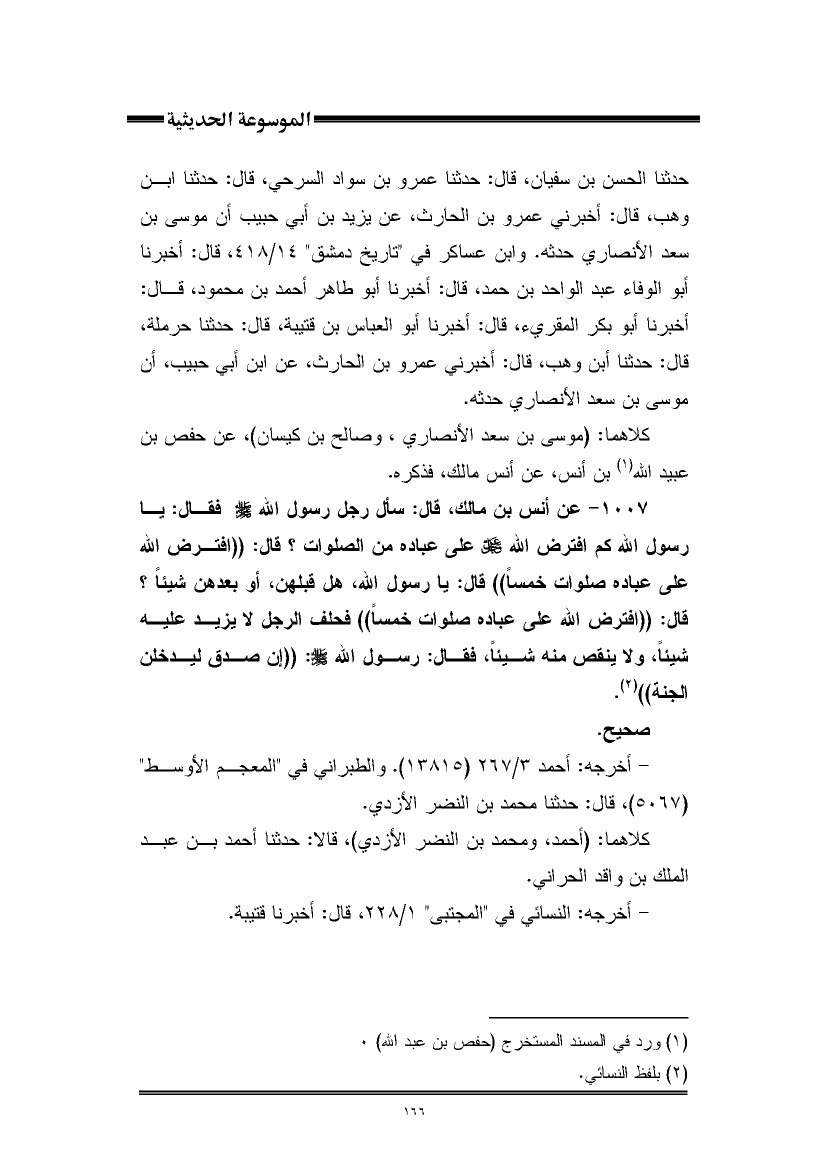 الموسوعة الحديثية
حدثنا الحسن بن سفيان، قال: حدثنا عمرو بن سواد السرحي، قال: حدثنا ابن
وهب، قال: أخبرني عمرو بن الحارث، عن يزيد بن أبي حبيب أن موسى بن
سعد الأنصاري حدثه. وابن عساكر في "تاريخ دمشق" ٤١٨/١٤، قال: أخبرنا
أبو الوفاء عبد الواحد بن حمد، قال: أخبرنا أبو طاهر أحمد بن محمود، قال:
أخبرنا أبو بكر المقريء، قال: أخبرنا أبو العباس بن قتيبة، قال: حدثنا حرملة،
قال: حدثنا أبن وهب، قال: أخبرني عمرو بن الحارث، عن ابن أبي حبيب، أن
موسى بن سعد الأنصاري حدثه.
كلاهما: (موسى بن سعد الأنصاري ، وصالح بن كيسان)، عن حفص بن
عبيد الله(١) بن أنس، عن أنس مالك، فذكره.
١٠٠٧- عن أنس بن مالك، قال: سأل رجل رسول الله ﷺ فقال: يا
رسول الله كم افترض الله ﷻ على عباده من الصلوات ؟ قال: ((افترض الله
على عباده صلوات خمساً)) قال: يا رسول الله، هل قبلهن، أو بعدهن شيئاً ؟
قال: ((افترض الله على عباده صلوات خمساً)) فحلف الرجل لا يزيد عليه
شيئاً، ولا ينقص منه شيئاً، فقال: رسول الله ﷺ: ((إن صدق ليدخلن
الجنة))(٢).
صحيح.
- أخرجه: أحمد ٢٦٧/٣ (١٣٨١٥). والطبراني في "المعجم الأوسط"
(٥٠٦٧)، قال: حدثنا محمد بن النضر الأزدي.
كلاهما: (أحمد، ومحمد بن النضر الأزدي)، قالا: حدثنا أحمد بن عبد
الملك بن واقد الحراني.
- أخرجه: النسائي في "المجتبى" ٢٢٨/١، قال: أخبرنا قتيبة.
(١) ورد في المسند المستخرج (حفص بن عبد الله) ٠
(٢) بلفظ النسائي.
١٦٦